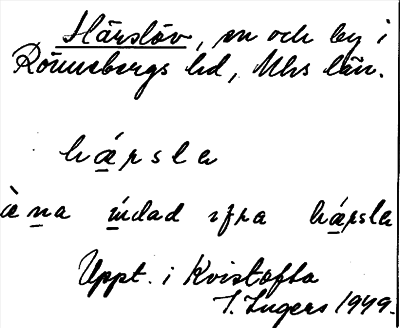 Härslöv, sn och by i
Rönnebergs hd, Mhs län.
hæ̱rslɐ
æ̀n̲a ḿ̲dad ɪfra hæ̱rslɐ
Uppt. i Kvistofta
I. Ingers 1949.